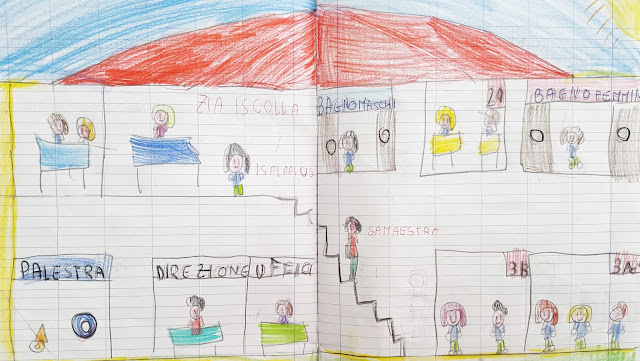 ZIA ISCOLLA
BAGNO MASCHI
2A
BAGNO FEMMIN
SA MAESTRA
PALESTRA
DIREZIONE
UFFICI
3B